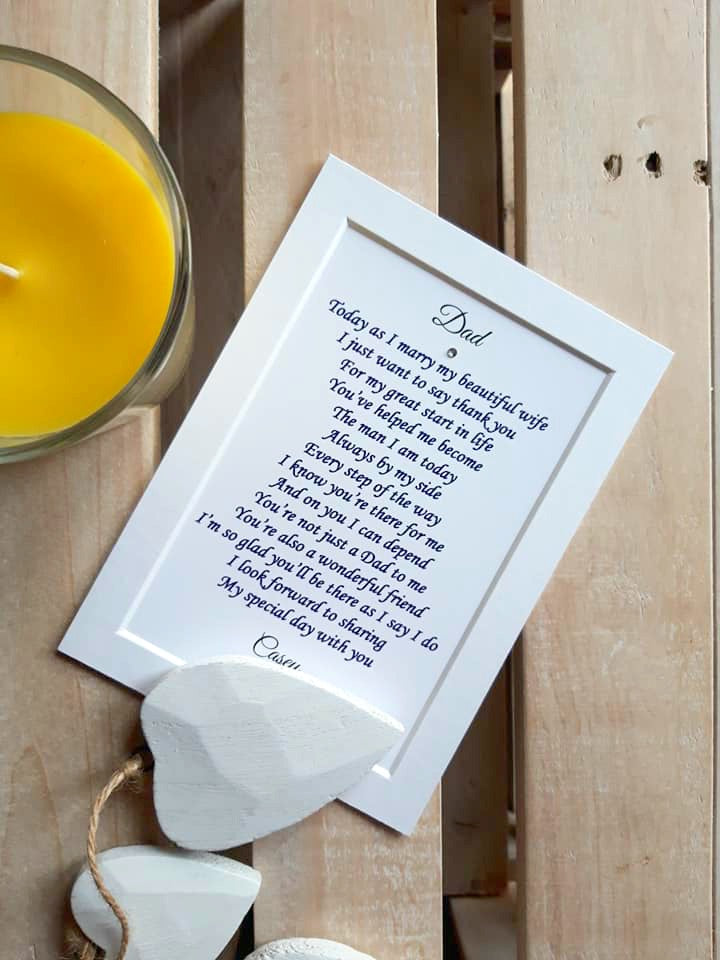 Dad
Today as I marry my beautiful wife
I just want to say thank you
For my great start in life
You've helped me become
The man I am today
Always by my side
Every step of the way
I know you're there for me
And on you I can depend
You're not just a Dad to me
You're also a wonderful friend
I'm so glad you'll be there as I say I do
I look forward to sharing
My special day with you
Casey